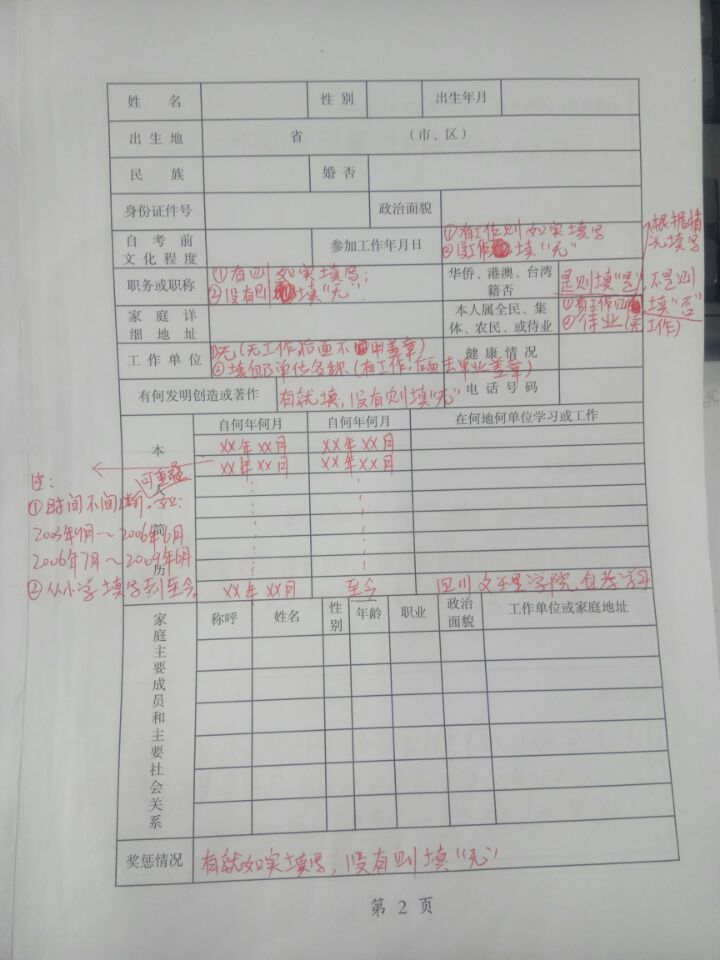 姓 名 性 别 出生年月
出 生 地 省 （市、区）
民 族 婚 否
身份证件号 政治面貌
自 考 前 文化程度 参加工作年月日 ①有工作则如实填写
②没工作填“无”
根据情况填写
职务或职称 ①有则如实填写;
②没有则填“无”
华侨、港澳、台湾籍否 是则填“是”,不是则填“否”
家 庭 详 细 地 址 本人属全民、集体、农民、或待业 ①有工作则
②待业(无工作)
工 作 单 位 ①无(无工作,后面不用盖章)
②填自己单位名称(有工作,后面去单位盖章)
健 康 情 况
有何发明创造或著作 有就填,没有则填“无” 电 话 号 码
本人简历 自何年何月 自何年何月 在何地何单位学习或工作
XX年XX月 XX年XX月
XX年XX月 XX年XX月
注:
可重叠
①时间不间断.如:
2003年9月～2006年6月
2006年7月～2009年6月
②从小学填写到至今.
XX年XX月 至今 四川文理学院自考学习
家庭主要成员和主要社会关系 称呼 姓名 性别 年龄 职业 政治面貌 工作单位或家庭地址
奖惩情况 有就如实填写,没有则填“无”
第 2 页